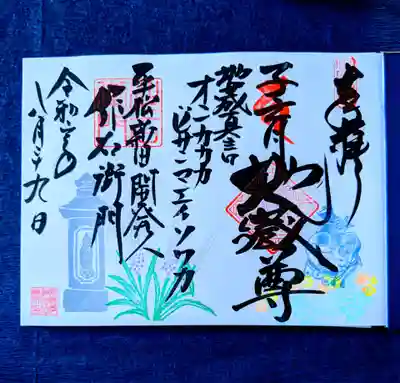 奉拝
子育地蔵尊
地蔵真言
オンカカカ
ビサンマエイソワカ
新田開発人
作右衛門
令和
八月 九日